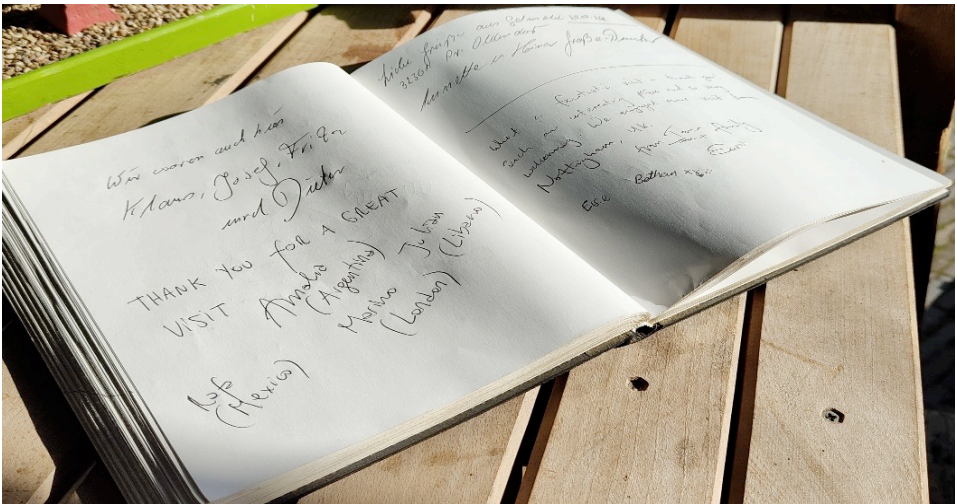 Wir waren auch hier
Klaus, Josef, Fritz
und Dieter
THANK YOU FOR A GREAT
VISIT
Amalia
(Argentina)
Julian
(Libano)
Marino
(London)
Rafa
(Mexico)
liebe Grüße aus
32361 Pr. Oldendorf
Annette u. Heiner Große-
What a fantastic find a
such an interesting place and so very
welcoming. We enjoyed our visit
Nottingham, UK.
from
Bethan